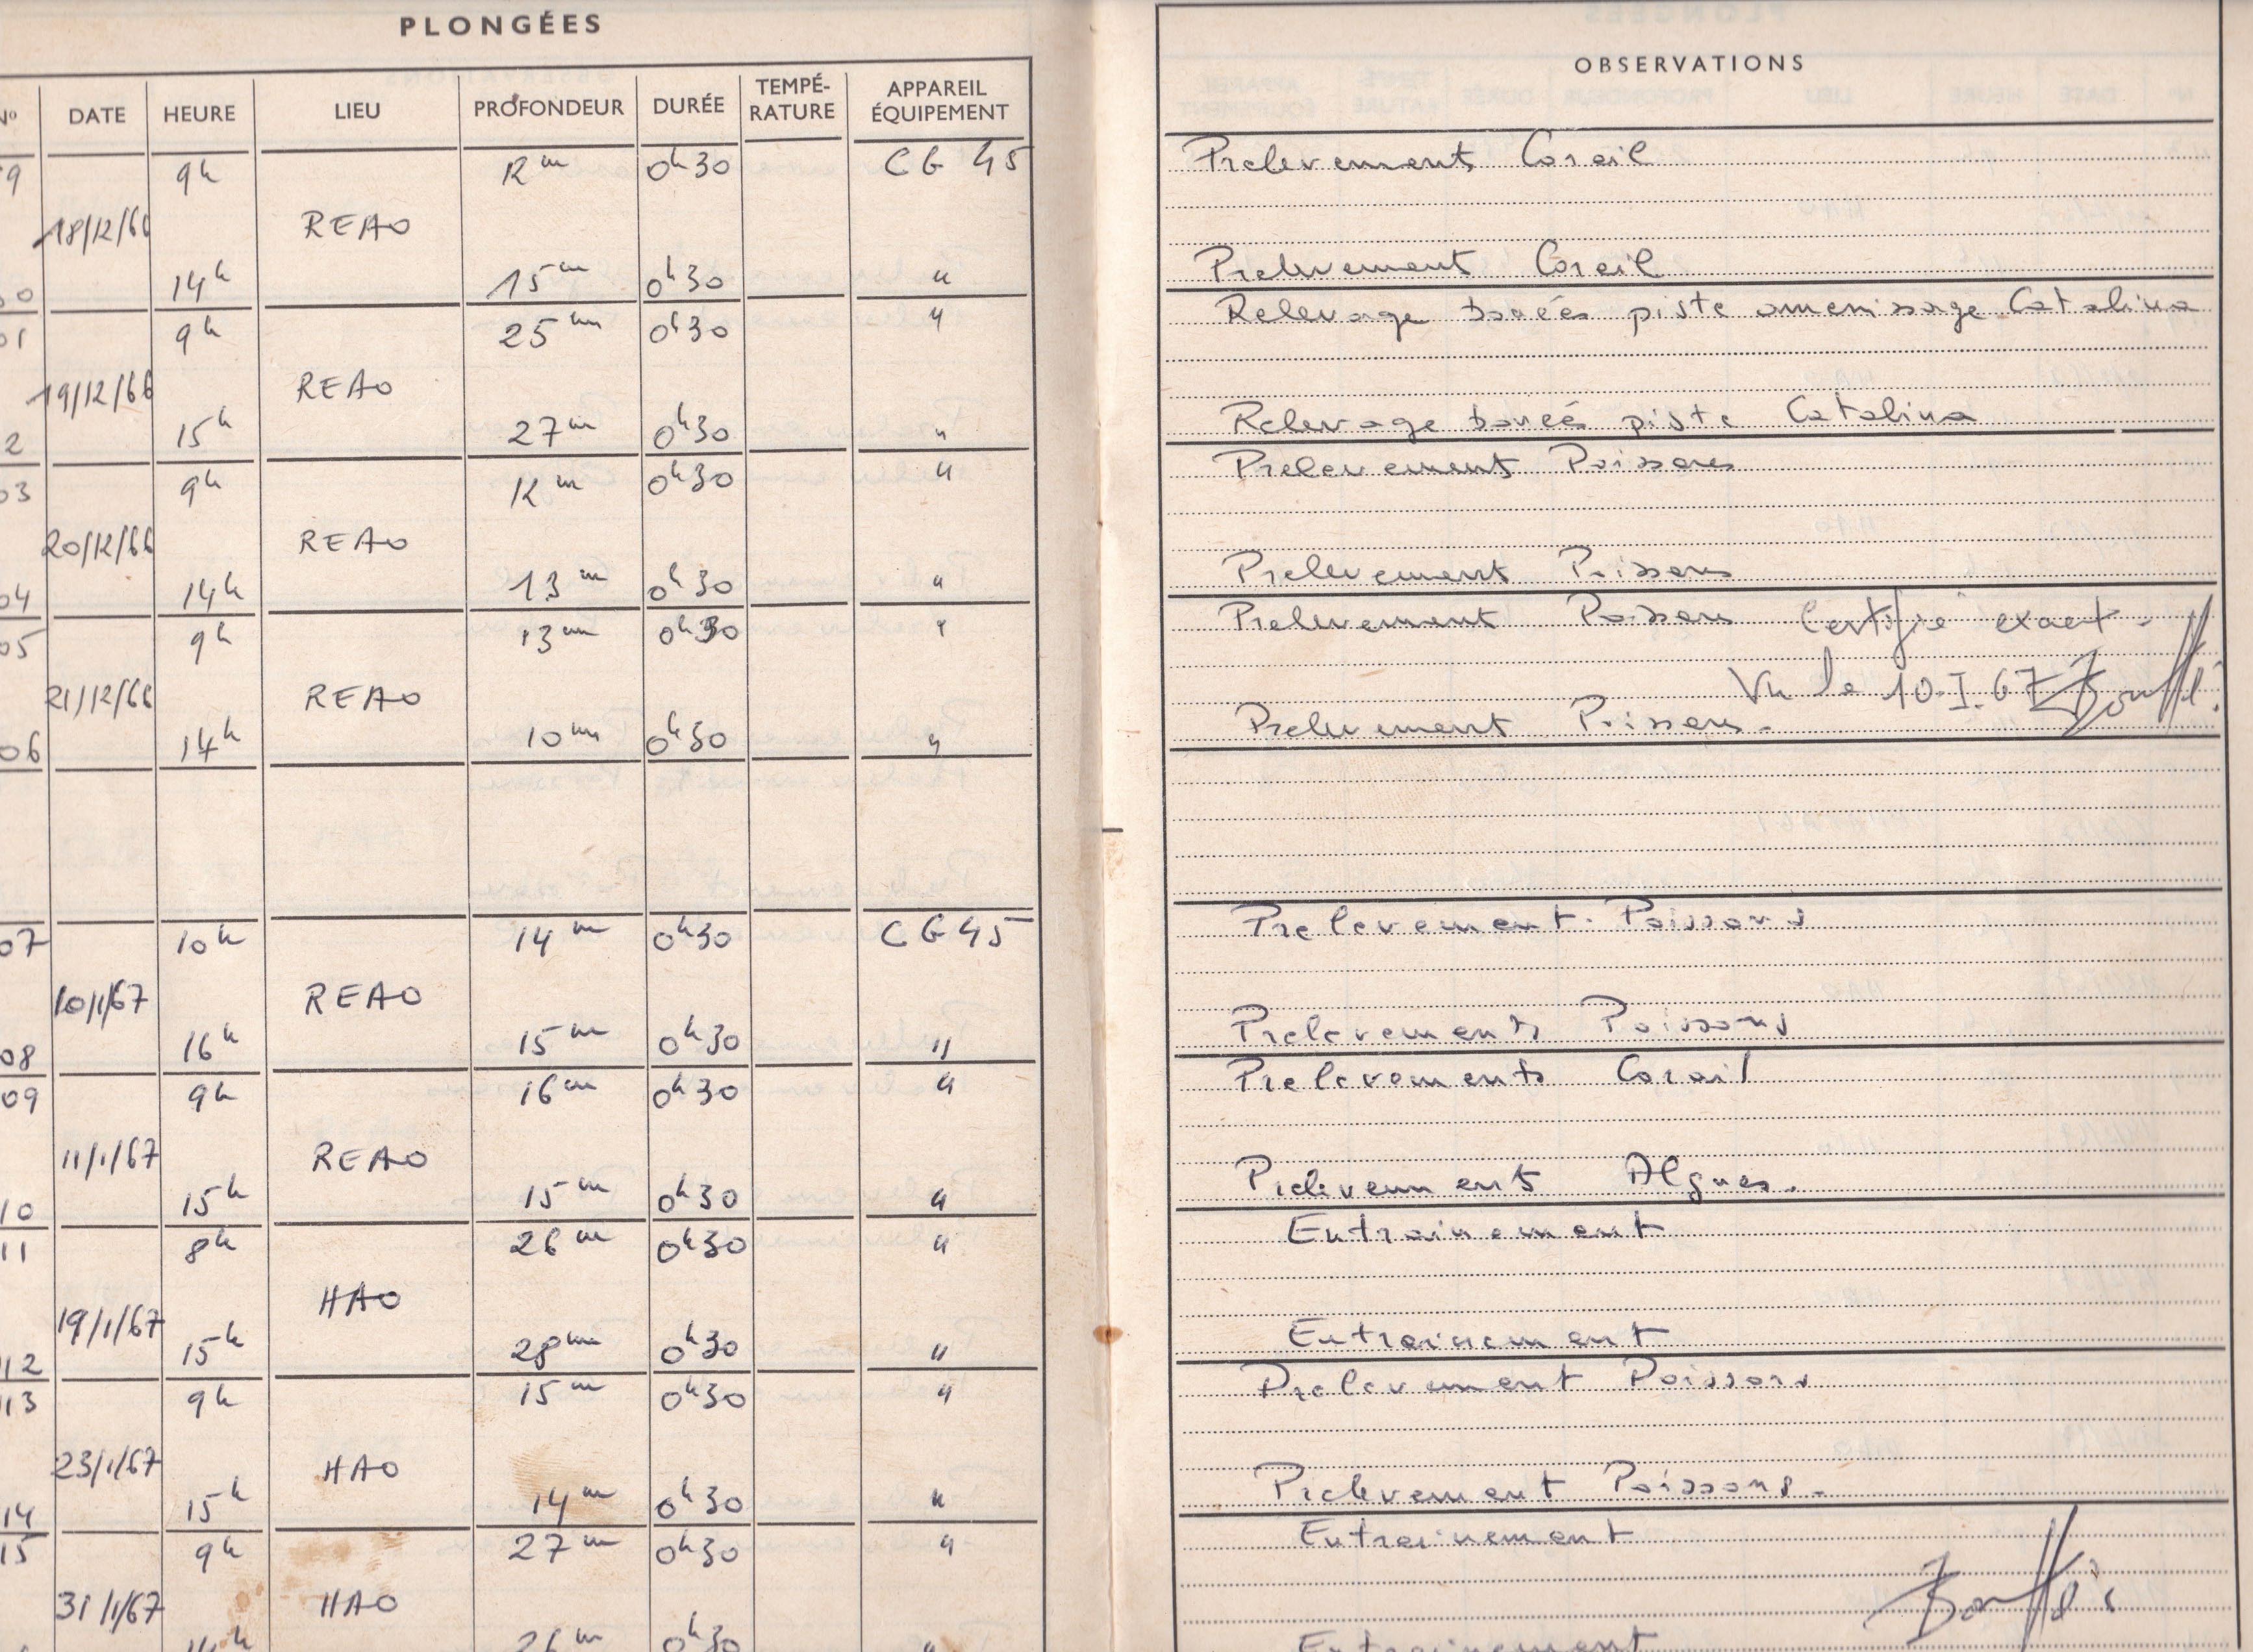 PLONGÉES
OBSERVATIONS
No DATE HEURE LIEU PROFONDEUR DURÉE TEMPÉ-RATURE APPAREIL ÉQUIPEMENT
9 9h 12m 0h30 CG 45 Prelevement Corail
18/12/66 REAO
0 14h 15m 0h30 " Prelevement Corail
01 9h 25m 0h30 " Relevage piste amerissage Catalina
19/12/66 REAO
2 15h 27m 0h30 " Relevage piste Catalina
03 9h 12m 0h30 " Prelevement Poissons
20/12/66 REAO
04 14h 13m 0h30 " Prelevement Poissons
05 9h 13m 0h30 " Prelevement Poissons Certifié exact -
21/12/66 REAO Vu le 10.I.67
06 14h 10m 0h30 " Prelevement Poissons.
07 10h 14m 0h30 CG 45 Prelevement Poissons
10/1/67 REAO
08 16h 15m 0h30 " Prelevements Poissons
09 9h 16m 0h30 " Prelevements Corail
11/1/67 REAO
10 15h 15m 0h30 " Prelevements Algues.
11 8h 26m 0h30 " Entrainement
19/1/67 HAO
12 15h 28m 0h30 " Entrainement
13 9h 15m 0h30 " Prelevement Poissons
23/1/67 HAO
14 15h 14m 0h30 " Prelevement Poissons.
15 9h 27m 0h30 " Entrainement
31/1/67 HAO
26m 0h30 " Entrainement